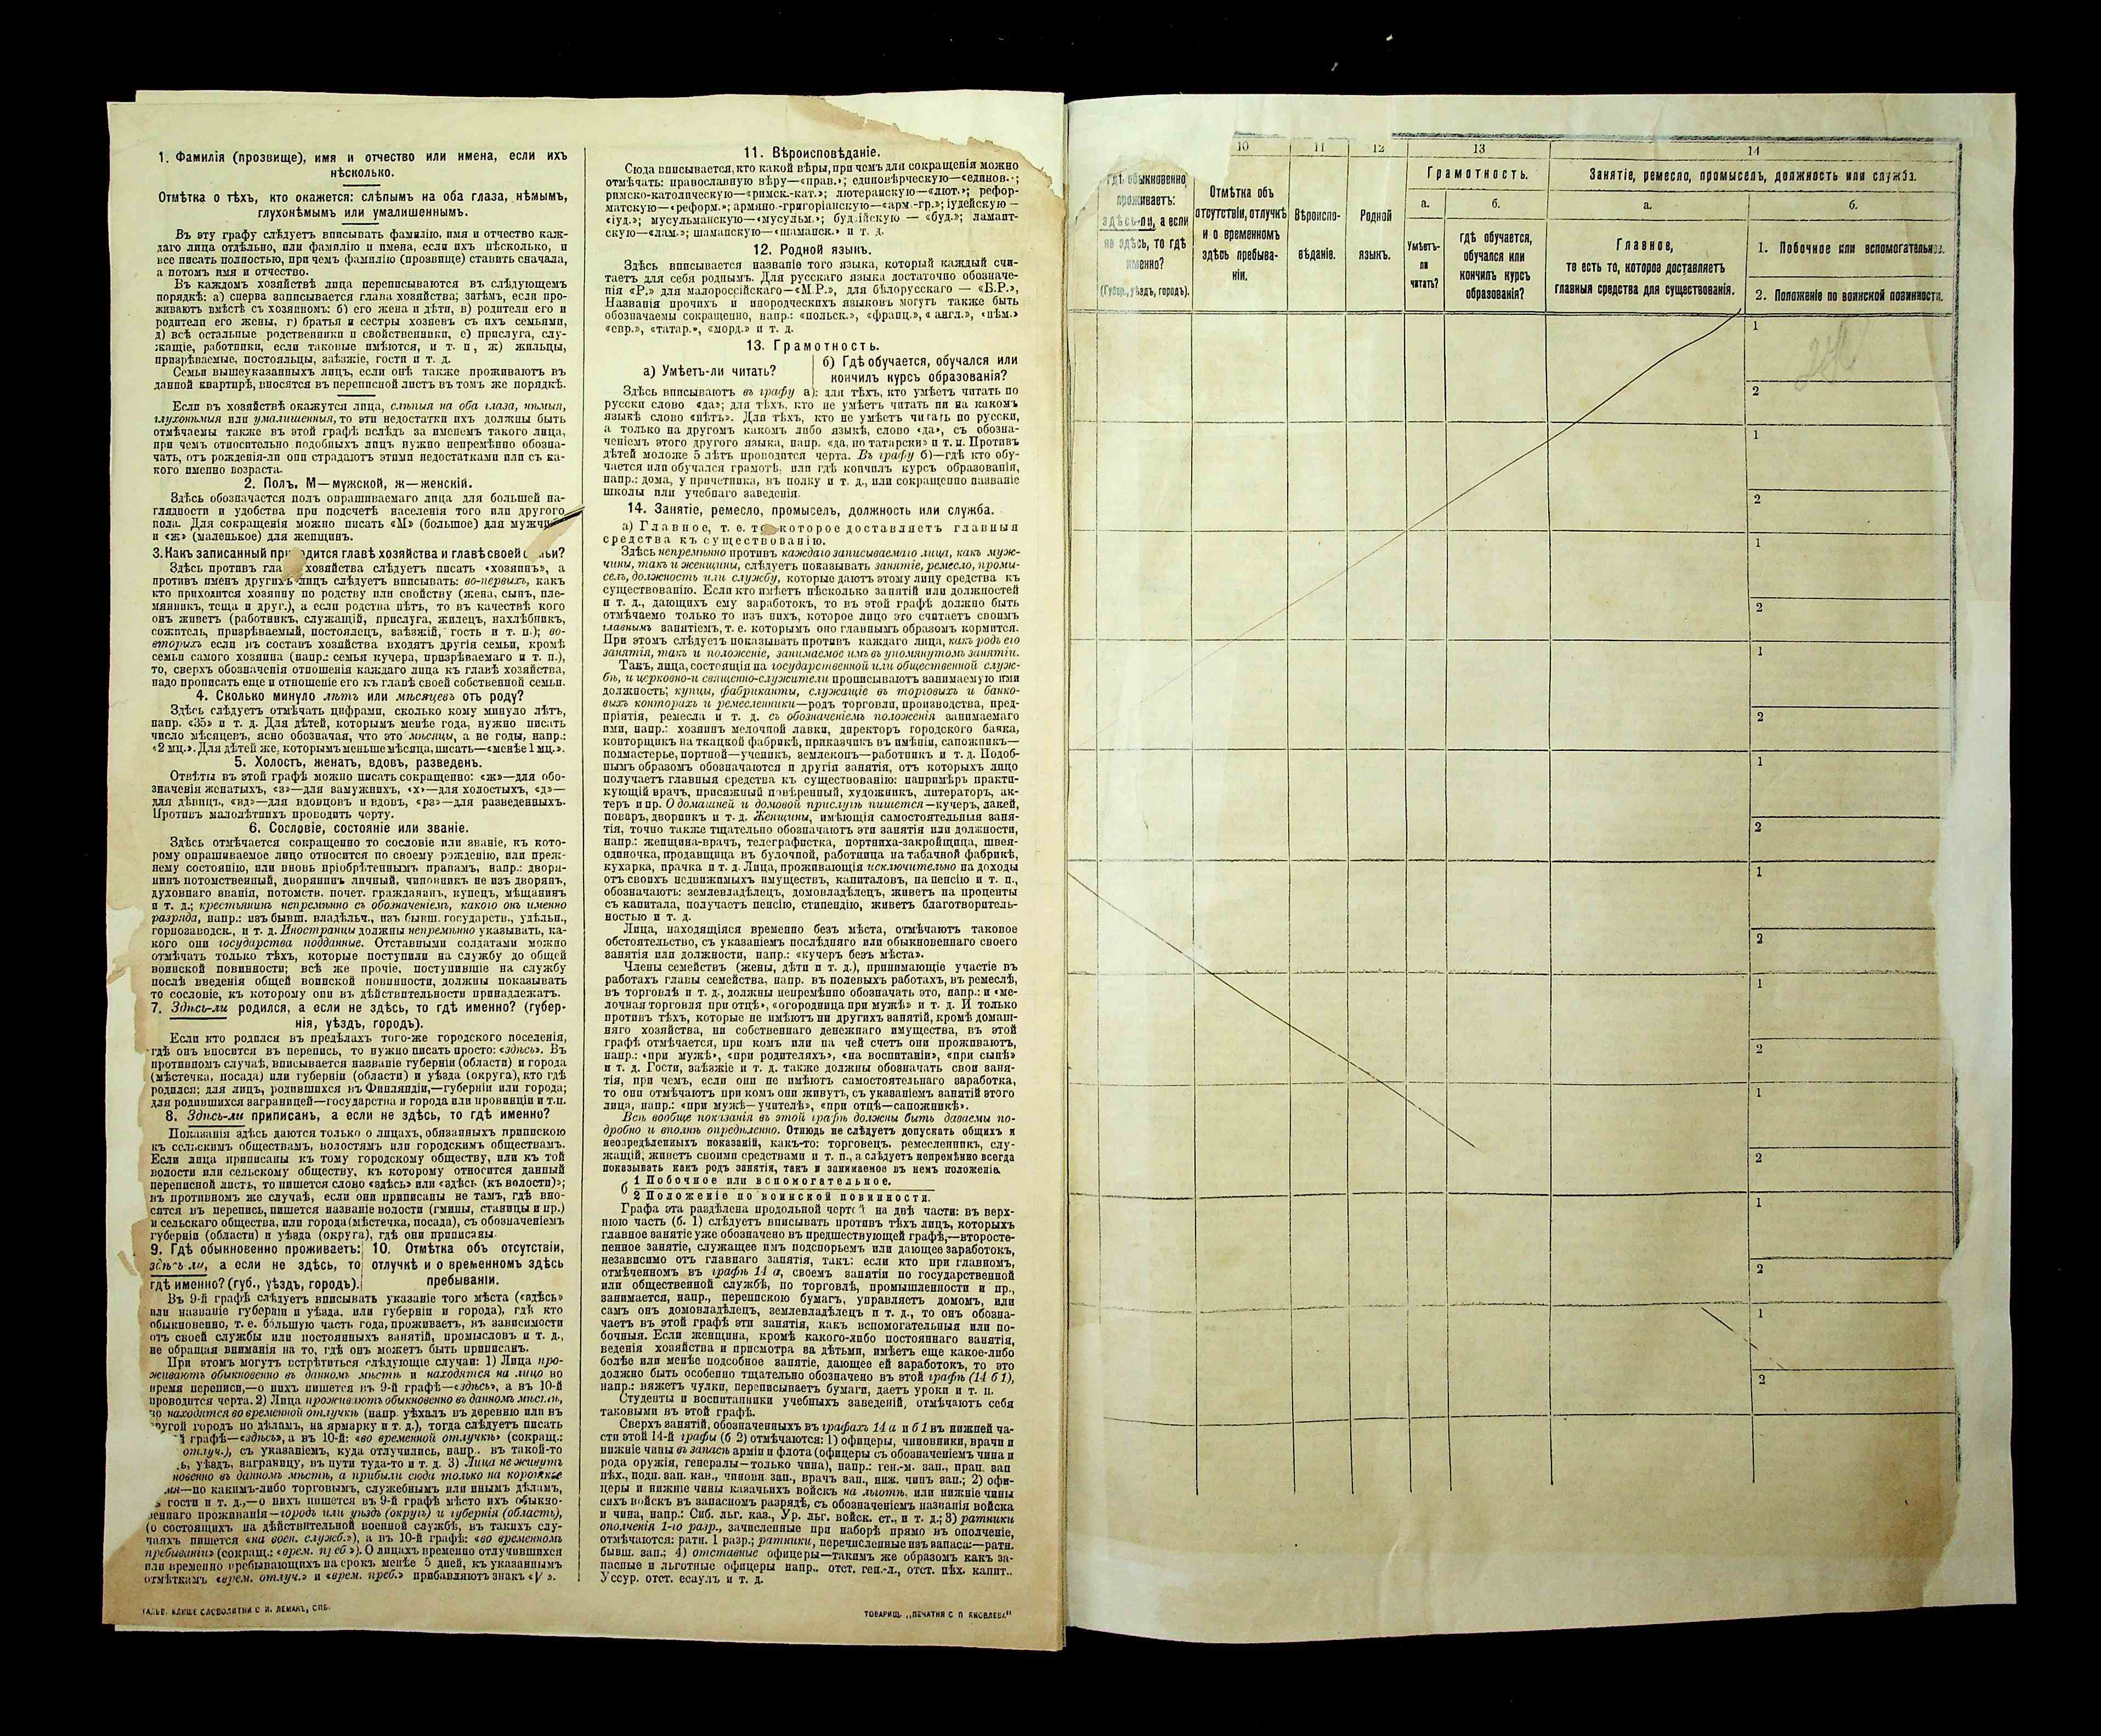 1. Фамилія (прозвище), имя и отчество или имена, если ихъ
нѣсколько.
Отмѣтка о тѣхъ, кто окажется: слѣпымъ на оба глаза, нѣмымъ,
глухонѣмымъ или умалишеннымъ.
Въ эту графу слѣдуетъ вписывать фамилію, имя и отчество каж-
даго лица отдѣльно, или фамилію и имена, если ихъ нѣсколько, и
все писать полностью, при чемъ фамилію (прозвище) ставить сначала,
а потомъ имя и отчество.
Въ каждомъ хозяйствѣ лица переписываются въ слѣдующемъ
порядкѣ: а) сперва записывается глава хозяйства; затѣмъ, если про-
живаютъ вмѣстѣ съ хозяиномъ: б) его жена и дѣти, в) родители его и
родители его жены, г) братья и сестры хозяевъ съ ихъ семьями,
д) всѣ остальные родственники и свойственники, е) прислуга, слу-
жащіе, работники, если таковые имѣются, и т. п, ж) жильцы,
призрѣваемые, постояльцы, заѣзжіе, гости и т. д.
Семьи вышеуказанныхъ лицъ, если онѣ также проживаютъ въ
данной квартирѣ, вносятся въ переписной листъ въ томъ же порядкѣ.
Если въ хозяйствѣ окажутся лица, слѣпыя на оба глаза, нѣмыя,
глухонѣмыя или умалишенныя, то эти недостатки ихъ должны быть
отмѣчаемы также въ этой графѣ вслѣдъ за именемъ такого лица,
при чемъ относительно подобныхъ лицъ нужно непремѣнно обозна-
чать, отъ рожденія-ли они страдаютъ этими недостатками или съ ка-
кого именно возраста.
2. Полъ. М—мужской, ж—женскій.
Здѣсь обозначается полъ опрашиваемаго лица для большей на-
глядности и удобства при подсчетѣ населенія того или другого
пола. Для сокращенія можно писать «М» (большое) для мужчинъ
и «ж» (маленькое) для женщинъ.
3. Какъ записанный приходится главѣ хозяйства и главѣ своей семьи?
Здѣсь противъ гла хозяйства слѣдуетъ писать «хозяинъ», а
противъ именъ другихъ лицъ слѣдуетъ вписывать: во-первыхъ, какъ
кто приходится хозяину по родству или свойству (жена, сынъ, пле-
мянникъ, теща и друг.), а если родства нѣтъ, то въ качествѣ кого
онъ живетъ (работникъ, служащій, прислуга, жилецъ, нахлѣбникъ,
сожитель, призрѣваемый, постоялецъ, заѣзжій, гость и т. п.); во-
вторыхъ если въ составъ хозяйства входятъ другія семьи, кромѣ
семьи самого хозяина (напр.: семья кучера, призрѣваемаго и т. п.),
то, сверхъ обозначенія отношенія каждаго лица къ главѣ хозяйства,
надо прописать еще и отношеніе его къ главѣ своей собственной семьи.
4. Сколько минуло лѣтъ или мѣсяцевъ отъ роду?
Здѣсь слѣдуетъ отмѣчать цифрами, сколько кому минуло лѣтъ,
напр. «35» и т. д. Для дѣтей, которымъ менѣе года, нужно писать
число мѣсяцевъ, ясно обозначая, что это мѣсяцы, а не годы, напр.:
«2 мц.». Для дѣтей же, которымъ меньше мѣсяца, писать—«менѣе 1 мц.».
5. Холостъ, женатъ, вдовъ, разведенъ.
Отвѣты въ этой графѣ можно писать сокращенно: «ж»—для обо-
значенія женатыхъ, «з»—для замужнихъ, «х»—для холостыхъ, «д»—
для дѣвицъ, «вд»—для вдовцовъ и вдовъ, «рз»—для разведенныхъ.
Противъ малолѣтнихъ проводить черту.
6. Сословіе, состояніе или званіе.
Здѣсь отмѣчается сокращенно то сословіе или званіе, къ кото-
рому опрашиваемое лицо относится по своему рожденію, или преж-
нему состоянію, или вновь пріобрѣтеннымъ правамъ, напр.: дворя-
нинъ потомственный, дворянинъ личный, чиновникъ не изъ дворянъ,
духовнаго званія, потомств. почет. гражданинъ, купецъ, мѣщанинъ
и т. д.; крестьянинъ непремѣнно съ обозначеніемъ, какого онъ именно
разряда, напр.: изъ бывш. владѣльч., изъ бывш. государств., удѣльн.,
горнозаводск., и т. д. Иностранцы должны непремѣнно указывать, ка-
кого они государства подданные. Отставными солдатами можно
отмѣчать только тѣхъ, которые поступили на службу до общей
воинской повинности; всѣ же прочіе, поступившіе на службу
послѣ введенія общей воинской повинности, должны показывать
то сословіе, къ которому они въ дѣйствительности принадлежатъ.
7. Здѣсь-ли родился, а если не здѣсь, то гдѣ именно? (губер-
нія, уѣздъ, городъ).
Если кто родился въ предѣлахъ того-же городского поселенія,
гдѣ онъ вносится въ перепись, то нужно писать просто: «здѣсь». Въ
противномъ случаѣ, вписывается названіе губерніи (области) и города
(мѣстечка, посада) или губерніи (области) и уѣзда (округа), кто гдѣ
родился; для лицъ, родившихся въ Финляндіи,—губерніи или города;
для родившихся заграницей—государства и города или провинціи и т.п.
8. Здѣсь-ли приписанъ, а если не здѣсь, то гдѣ именно?
Показанія здѣсь даются только о лицахъ, обязанныхъ припискою
къ сельскимъ обществамъ, волостямъ или городскимъ обществамъ.
Если лица приписаны къ тому городскому обществу, или къ той
волости или сельскому обществу, къ которому относится данный
переписной листъ, то пишется слово «здѣсь» или «здѣсь (къ волости)»;
въ противномъ же случаѣ, если они приписаны не тамъ, гдѣ вно-
сятся въ перепись, пишется названіе волости (гмины, станицы и пр.)
и сельскаго общества, или города (мѣстечка, посада), съ обозначеніемъ
губерніи (области) и уѣзда (округа), гдѣ они приписаны.
9. Гдѣ обыкновенно проживаетъ:
здѣсь-ли, а если не здѣсь, то
гдѣ именно? (губ., уѣздъ, городъ).
10. Отмѣтка объ отсутствіи,
отлучкѣ и о временномъ здѣсь
пребываніи.
Въ 9-й графѣ слѣдуетъ вписывать указаніе того мѣста («здѣсь»
или названіе губерніи и уѣзда, или губерніи и города), гдѣ кто
обыкновенно, т. е. большую часть года, проживаетъ, въ зависимости
отъ своей службы или постоянныхъ занятій, промысловъ и т. д.,
не обращая вниманія на то, гдѣ онъ можетъ быть приписанъ.
При этомъ могутъ встрѣтиться слѣдующіе случаи: 1) Лица про-
живаютъ обыкновенно въ данномъ мѣстѣ и находятся на лицо во
время переписи,—о нихъ пишется въ 9-й графѣ—«здѣсь», а въ 10-й
проводится черта. 2) Лица проживаютъ обыкновенно въ данномъ мѣстѣ,
но находятся во временной отлучкѣ (напр. уѣхалъ въ деревню или въ
другой городъ по дѣламъ, на ярмарку и т. д.), тогда слѣдуетъ писать
й графѣ—«здѣсь», а въ 10-й: «во временной отлучкѣ» (сокращ.:
отлуч.), съ указаніемъ, куда отлучились, напр. въ такой-то
ь, уѣздъ, заграницу, въ пути туда-то и т. д. 3) Лица не живутъ
новенно въ данномъ мѣстѣ, а прибыли сюда только на короткое
мя—по какимъ-либо торговымъ, служебнымъ или инымъ дѣламъ,
въ гости и т. д.,—о нихъ пишется въ 9-й графѣ мѣсто ихъ обыкно-
веннаго проживанія—городъ или уѣздъ (округъ) и губернія (область),
(о состоящихъ на дѣйствительной военной службѣ, въ такихъ слу-
чаяхъ пишется «на воен. служб.»), а въ 10-й графѣ: «во временномъ
пребываніи» (сокращ.: «врем. преб»). О лицахъ временно отлучившихся
или временно пребывающихъ на срокъ менѣе 5 дней, къ указаннымъ
отмѣткамъ «врем. отлуч.» и «врем. преб.» прибавляютъ знакъ «V».
ГАЛЬВ. КЛИШЕ СЛОВОЛИТНИ О. И. ЛЕМАНЪ, СПБ.
11. Вѣроисповѣданіе.
Сюда вписывается, кто какой вѣры, при чемъ для сокращенія можно
отмѣчать: православную вѣру—«прав.»; единовѣрческую—«единов.»;
римско-католическую—«римск.-кат.»; лютеранскую—«лют.»; рефор-
матскую—«реформ.»; армяно-григоріанскую—«арм.-гр.»; іудейскую—
«іуд.»; мусульманскую—«мусульм.»; буддійскую — «буд.»; ламаит-
скую—«лам.»; шаманскую—«шаманск.» и т. д.
12. Родной языкъ.
Здѣсь вписывается названіе того языка, который каждый счи-
таетъ для себя роднымъ. Для русскаго языка достаточно обозначе-
нія «Р.» для малороссійскаго—«М.Р.», для бѣлорусскаго — «Б.Р.»,
Названія прочихъ и инородческихъ языковъ могутъ также быть
обозначаемы сокращенно, напр.: «польск.», «франц.», «англ.», «нѣм.»
«евр.», «татар.», «морд.» и т. д.
13. Грамотность.
а) Умѣетъ-ли читать?
б) Гдѣ обучается, обучался или
кончилъ курсъ образованія?
Здѣсь вписываютъ въ графу а): для тѣхъ, кто умѣетъ читать по
русски слово «да»; для тѣхъ, кто не умѣетъ читать ни на какомъ
языкѣ слово «нѣтъ». Для тѣхъ, кто не умѣетъ читать по русски,
а только на другомъ какомъ либо языкѣ, слово «да», съ обозна-
ченіемъ этого другого языка, напр. «да, по татарски» и т. п. Противъ
дѣтей моложе 5 лѣтъ проводится черта. Въ графу б)—гдѣ кто обу-
чается или обучался грамотѣ, или гдѣ кончилъ курсъ образованія,
напр.: дома, у причетника, въ полку и т. д., или сокращенно названіе
школы или учебнаго заведенія.
14. Занятіе, ремесло, промыселъ, должность или служба.
а) Главное, т. е. то которое доставляетъ главныя
средства къ существованію.
Здѣсь непремѣнно противъ каждаго записываемаго лица, какъ муж-
чины, такъ и женщины, слѣдуетъ показывать занятіе, ремесло, промы-
селъ, должность или службу, которые даютъ этому лицу средства къ
существованію. Если кто имѣетъ нѣсколько занятій или должностей
и т. д., дающихъ ему заработокъ, то въ этой графѣ должно быть
отмѣчаемо только то изъ нихъ, которое лицо это считаетъ своимъ
главнымъ занятіемъ, т. е. которымъ оно главнымъ образомъ кормится.
При этомъ слѣдуетъ показывать противъ каждаго лица, какъ родъ его
занятія, такъ и положеніе, занимаемое имъ въ упомянутомъ занятіи.
Такъ, лица, состоящія на государственной или общественной служ-
бѣ, и церковно-и священно-служители прописываютъ занимаемую ими
должность; купцы, фабриканты, служащіе въ торговыхъ и банко-
выхъ конторахъ и ремесленники—родъ торговли, производства, пред-
пріятія, ремесла и т. д. съ обозначеніемъ положенія занимаемаго
ими, напр.: хозяинъ мелочной лавки, директоръ городского банка,
конторщикъ на ткацкой фабрикѣ, приказчикъ въ имѣніи, сапожникъ—
подмастерье, портной—ученикъ, землекопъ—работникъ и т. д. Подоб-
нымъ образомъ обозначаются и другія занятія, отъ которыхъ лицо
получаетъ главныя средства къ существованію: напримѣръ практи-
кующій врачъ, присяжный повѣренный, художникъ, литераторъ, ак-
теръ и пр. О домашней и домовой прислугѣ пишется—кучеръ, лакей,
поваръ, дворникъ и т. д. Женщины, имѣющія самостоятельныя заня-
тія, точно также тщательно обозначаютъ эти занятія или должности,
напр.: женщина-врачъ, телеграфистка, портниха-закройщица, швея-
одиночка, продавщица въ булочной, работница на табачной фабрикѣ,
кухарка, прачка и т. д. Лица, проживающія исключительно на доходы
отъ своихъ недвижимыхъ имуществъ, капиталовъ, на пенсію и т. п.,
обозначаютъ: землевладѣлецъ, домовладѣлецъ, живетъ на проценты
съ капитала, получаетъ пенсію, стипендію, живетъ благотворитель-
ностью и т. д.
Лица, находящіяся временно безъ мѣста, отмѣчаютъ таковое
обстоятельство, съ указаніемъ послѣдняго или обыкновеннаго своего
занятія или должности, напр.: «кучеръ безъ мѣста».
Члены семействъ (жены, дѣти и т. д.), принимающіе участіе въ
работахъ главы семейства, напр. въ полевыхъ работахъ, въ ремеслѣ,
въ торговлѣ и т. д., должны непремѣнно обозначать это, напр.: и «ме-
лочная торговля при отцѣ», «огородница при мужѣ» и т. д. И только
противъ тѣхъ, которые не имѣютъ ни другихъ занятій, кромѣ домаш-
няго хозяйства, ни собственнаго денежнаго имущества, въ этой
графѣ отмѣчается, при комъ или на чей счетъ они проживаютъ,
напр.: «при мужѣ», «при родителяхъ», «на воспитаніи», «при сынѣ»
и т. д. Гости, заѣзжіе и т. д. также должны обозначать свои заня-
тія, при чемъ, если они не имѣютъ самостоятельнаго заработка,
то они отмѣчаютъ при комъ они живутъ, съ указаніемъ занятій этого
лица, напр.: «при мужѣ—учителѣ», «при отцѣ—сапожникѣ».
Всѣ вообще показанія въ этой графѣ должны быть даваемы по-
дробно и вполнѣ опредѣленно. Отнюдь не слѣдуетъ допускать общихъ и
неопредѣленныхъ показаній, какъ-то: торговецъ, ремесленникъ, слу-
жащій, живетъ своими средствами и т. п., а слѣдуетъ непремѣнно всегда
показывать какъ родъ занятія, такъ и занимаемое въ немъ положеніе.
б 1 Побочное или вспомогательное.
2 Положеніе по воинской повинности.
Графа эта раздѣлена продольной чертой на двѣ части: въ верх-
нюю часть (б. 1) слѣдуетъ вписывать противъ тѣхъ лицъ, которыхъ
главное занятіе уже обозначено въ предшествующей графѣ,—второсте-
пенное занятіе, служащее имъ подспорьемъ или дающее заработокъ,
независимо отъ главнаго занятія, такъ: если кто при главномъ,
отмѣченномъ въ графѣ 14 а, своемъ занятіи по государственной
или общественной службѣ, по торговлѣ, промышленности и пр.,
занимается, напр., перепискою бумагъ, управляетъ домомъ, или
самъ онъ домовладѣлецъ, землевладѣлецъ и т. д., то онъ обозна-
чаетъ въ этой графѣ эти занятія, какъ вспомогательныя или по-
бочныя. Если женщина, кромѣ какого-либо постояннаго занятія,
веденія хозяйства и присмотра за дѣтьми, имѣетъ еще какое-либо
болѣе или менѣе подсобное занятіе, дающее ей заработокъ, то это
должно быть особенно тщательно обозначено въ этой графѣ (14 б 1),
напр.: вяжетъ чулки, переписываетъ бумаги, даетъ уроки и т. п.
Студенты и воспитанники учебныхъ заведеній, отмѣчаютъ себя
таковыми въ этой графѣ.
Сверхъ занятій, обозначенныхъ въ графахъ 14 а и б 1 въ нижней ча-
сти этой 14-й графы (б 2) отмѣчаются: 1) офицеры, чиновники, врачи и
нижніе чины въ запасѣ арміи и флота (офицеры съ обозначеніемъ чина и
рода оружія, генералы—только чина), напр.: ген.-м. зап., прап. зап
пѣх., подп. зап. кав., чиновн. зап., врачъ зап., ниж. чинъ зап.; 2) офи-
церы и нижніе чины казачьихъ войскъ на льготѣ, или нижніе чины
сихъ войскъ въ запасномъ разрядѣ, съ обозначеніемъ названія войска
и чина, напр.: Сиб. льг. каз., Ур. льг. войск. ст., и т. д.; 3) ратники
ополченія 1-го разр., зачисленные при наборѣ прямо въ ополченіе,
отмѣчаются: ратн. 1 разр.; ратники, перечисленные изъ запаса:—ратн.
бывш. зап.; 4) отставные офицеры—такимъ же образомъ какъ за-
пасные и льготные офицеры напр.. отст. ген.-л., отст. пѣх. капит..
Уссур. отст. есаулъ и т. д.
ТОВАРИЩ. „ПЕЧАТНЯ С П ЯКОВЛЕВА"
10
11
12
13
14
Гдѣ обыкновенно
проживаетъ:
здѣсь-ли, а если
не здѣсь, то гдѣ
именно?
(Губер., уѣздъ, городъ).
Отмѣтка объ
отсутствіи, отлучкѣ
и о временномъ
здѣсь пребыва-
ніи.
Вѣроиспо-
вѣданіе.
Родной
языкъ.
Грамотность.
а.
Умѣетъ-
ли
читать?
б.
гдѣ обучается,
обучался или
кончилъ курсъ
образованія?
Занятіе, ремесло, промыселъ, должность или служба.
а.
Главное,
то есть то, которое доставляетъ
главныя средства для существованія.
б.
1. Побочное или вспомогательное.
2. Положеніе по воинской повинности.
1
2
1
2
1
2
1
2
1
2
1
2
1
2
1
2
1
2
1
2